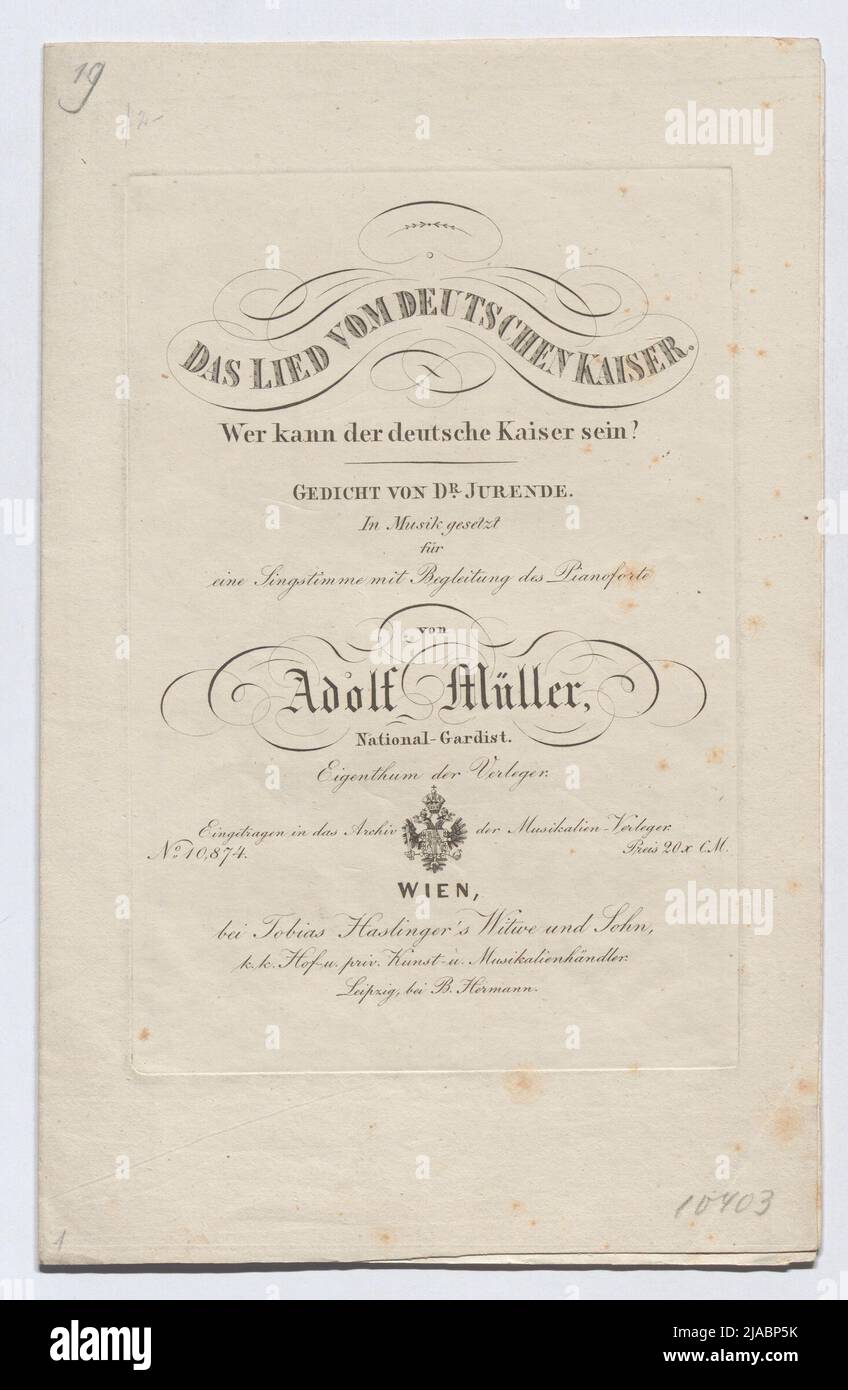 19
12-
DAS LIED VOM DEUTSCHEN KAISER.
Wer kann der deutsche Kaiser sein?
GEDICHT VON DR. JURENDE.
In Musik gesetzt
für
eine Singstimme mit Begleitung des Pianoforte
von
Adolf Müller,
National-Gardist.
Eigenthum der Verleger.
Eingetragen in das Archiv der Musikalien-Verleger.
No. 10,874. Preis 20 x C.M.
WIEN,
bei Tobias Haslinger's Witwe und Sohn,
k. k. Hof- u. priv. Kunst- u. Musikalienhändler.
Leipzig, bei B. Hermann.
10403
1
alamy
Image ID: 2JABP5K
www.alamy.com